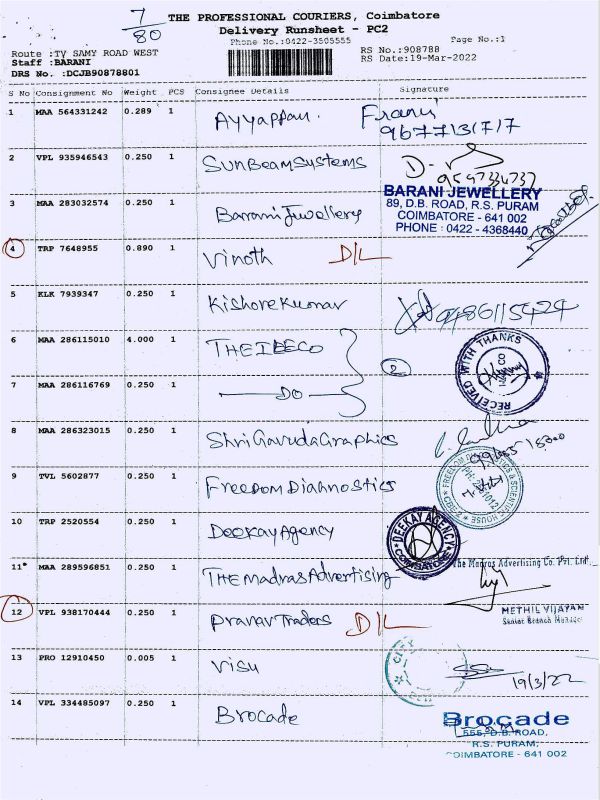 7/80
THE PROFESSIONAL COURIERS, Coimbatore
Delivery Runsheet - PC2
Phone No.:0422-3505555
Page No.:1
Route :TV SAMY ROAD WEST
RS No.:908788
Staff :BARANI
RS Date:19-Mar-2022
DRS No. :DCJB90878801
S No Consignment No Weight PCS Consignee Details Signature
1 MAA 564331242 0.289 1 Ayyappan.
9677131717
2 VPL 935946543 0.250 1 SunBeamSystems
3 MAA 283032574 0.250 1 BaraniJwellery
BARANI JEWELLERY
89, D.B. ROAD, R.S. PURAM
COIMBATORE - 641 002
PHONE : 0422 - 4368440
4 TRP 7648955 0.890 1 Vinoth D/L
5 KLK 7939347 0.250 1 KishoreKumar 9486115424
6 MAA 286115010 4.000 1
RECEIVED WITH THANKS
7 MAA 286116769 0.250 1 DO 2
8 MAA 286323015 0.250 1 ShriGarudaGraphics
9 TVL 5602877 0.250 1 FreedomDiahnostics
10 TRP 2520554 0.250 1 DeekayAgency
DEEKAY AGENCY
COIMBATORE
11 MAA 289596851 0.250 1 THEMadrasAdvertising
The Madras Advertising Co. Pvt. Ltd.
METHIL VIJAYAN
Senior Branch Manager
12 VPL 938170444 0.250 1 PranavTraders D/L
13 PRO 12910450 0.005 1 Visu
CITY
19/3/22
14 VPL 334485097 0.250 1 Brocade
Brocade
555, D.B. ROAD,
R.S. PURAM,
COIMBATORE - 641 002